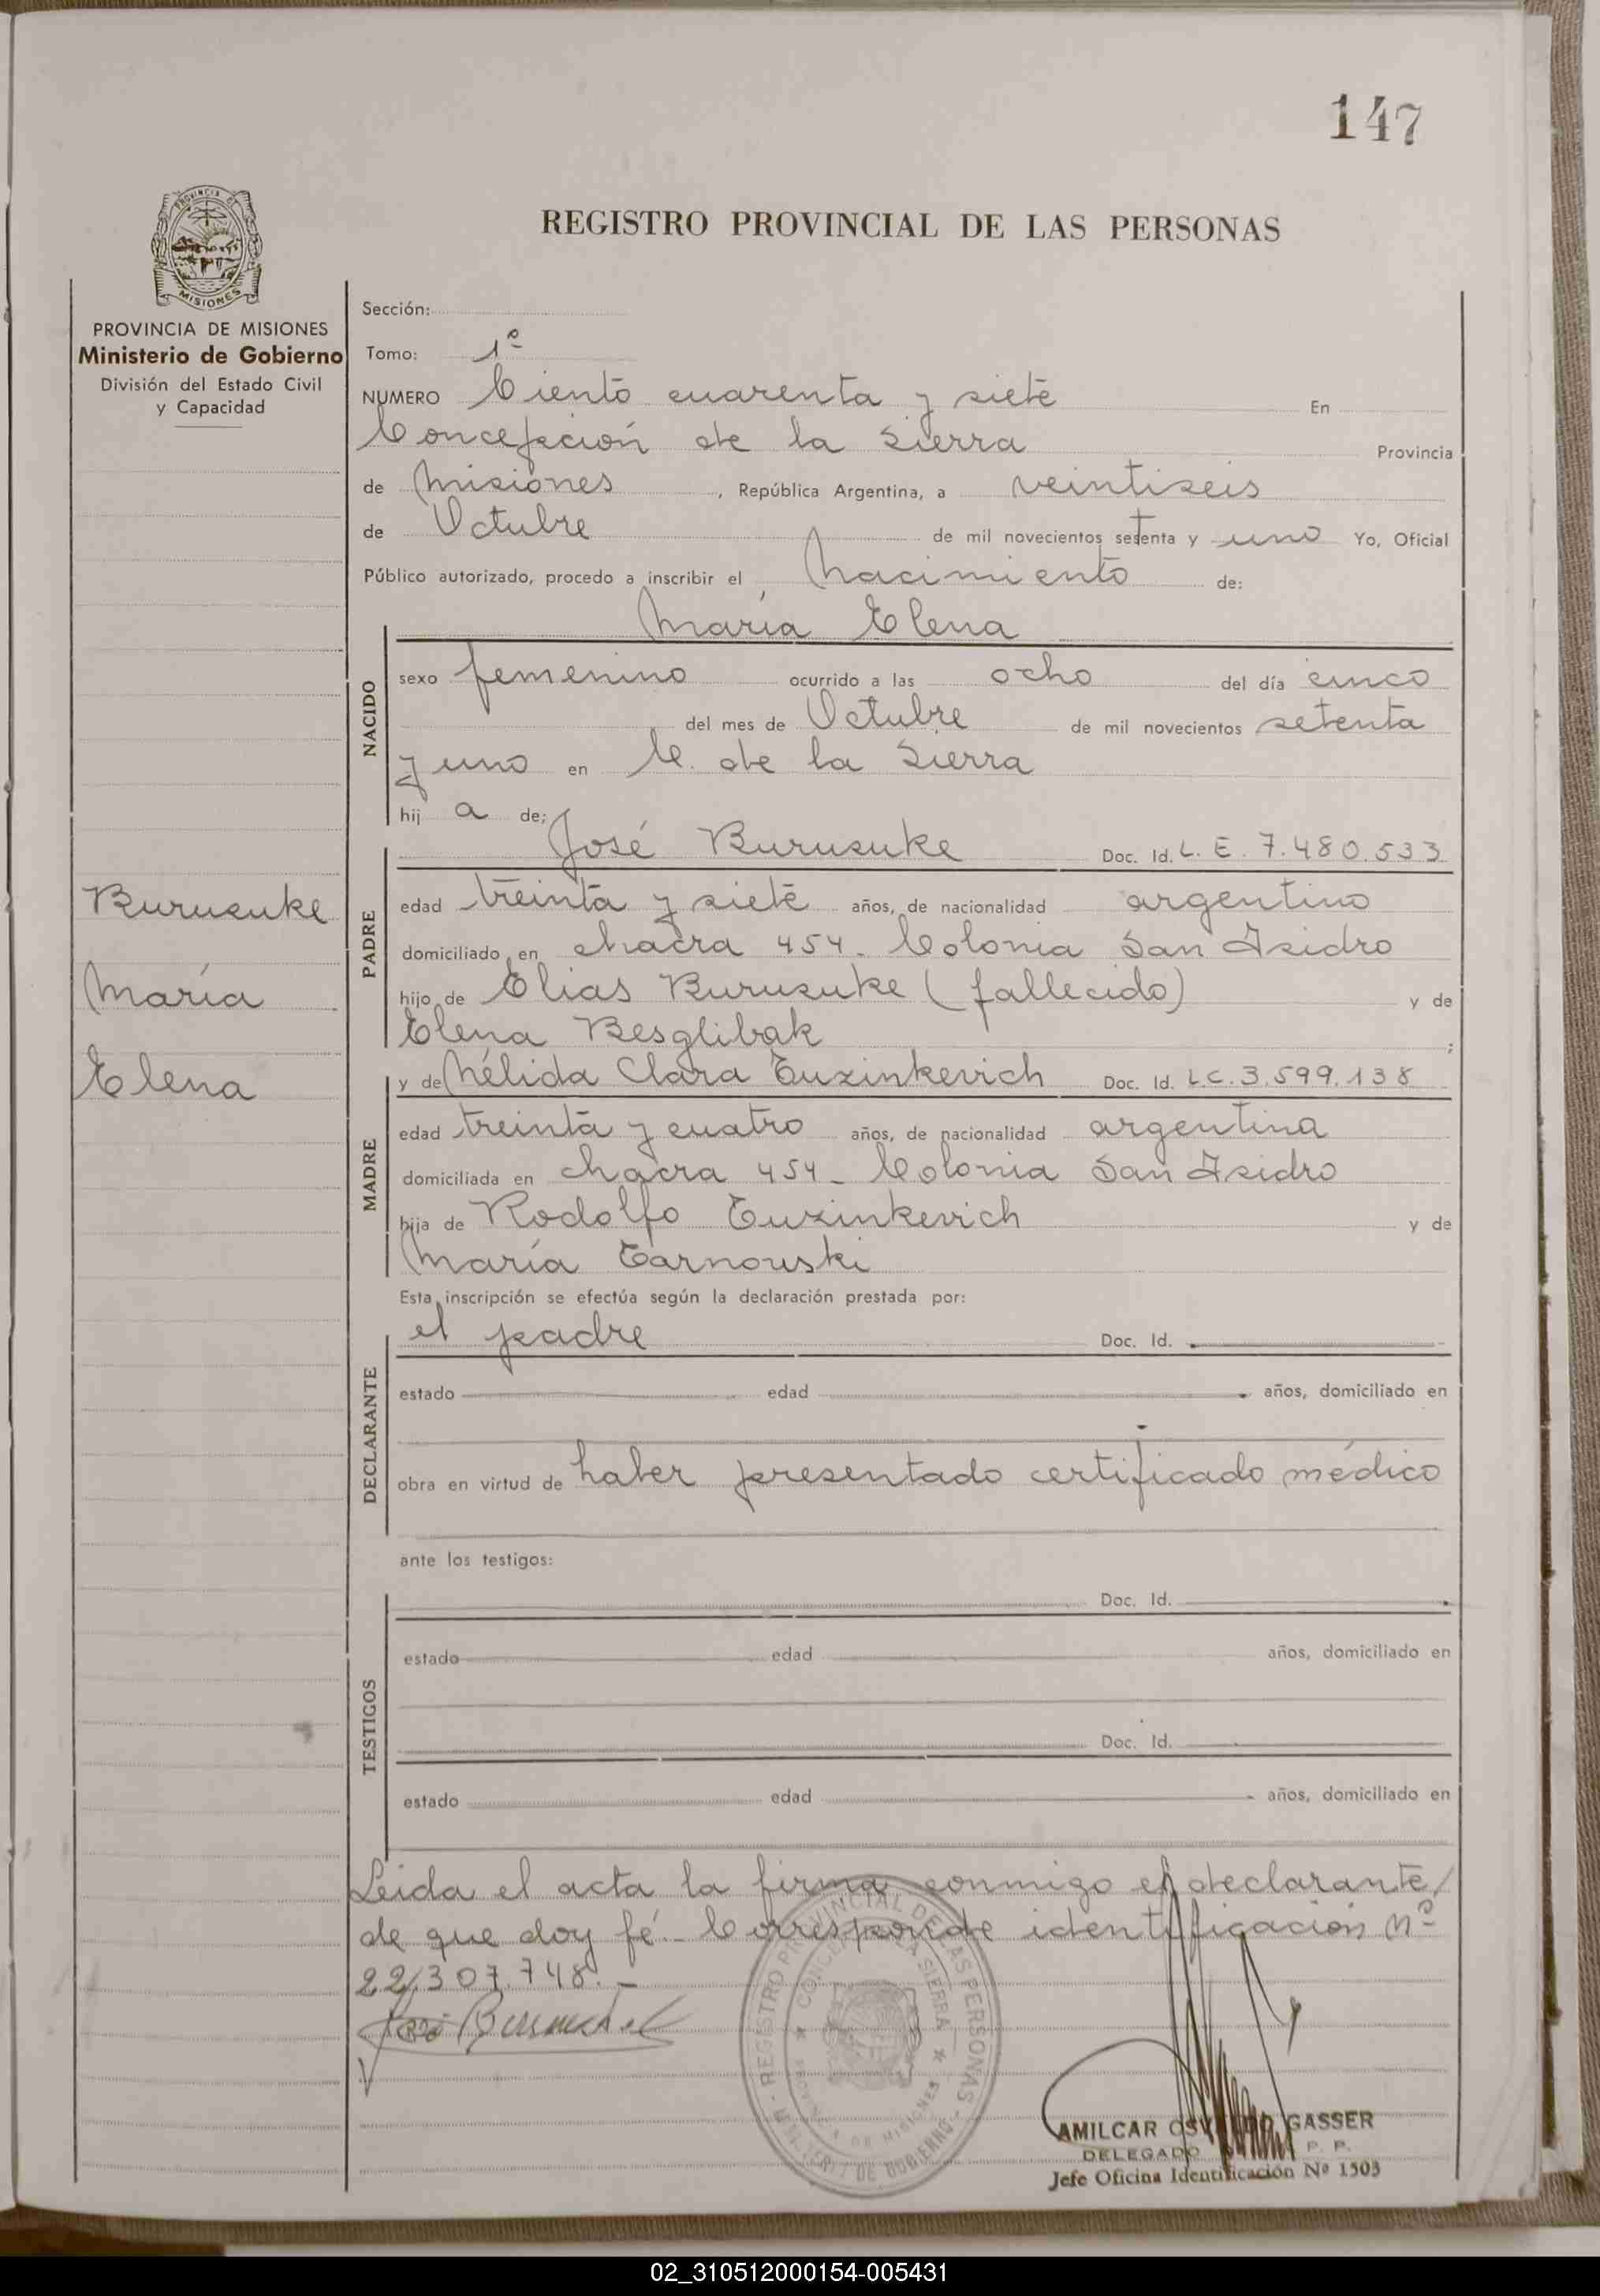 147
PROVINCIA DE
MISIONES
REGISTRO PROVINCIAL DE LAS PERSONAS
PROVINCIA DE MISIONES
Ministerio de Gobierno
División del Estado Civil
y Capacidad
Sección:
Tomo: 1º
NUMERO Ciento cuarenta y siete En
Concepción de la Sierra Provincia
de Misiones, República Argentina, a veintiseis
de Octubre de mil novecientos setenta y uno Yo, Oficial
Público autorizado, procedo a inscribir el Nacimiento de:
María Elena
NACIDO
sexo femenino ocurrido a las ocho del día cinco
del mes de Octubre de mil novecientos setenta
y uno en C. de la Sierra
hij a de;
José Burusuke Doc. Id. L. E. 7.480.533
PADRE
edad treinta y siete años, de nacionalidad argentino
domiciliado en chacra 454. Colonia San Isidro
hijo de Elias Burusuke (fallecido) y de
Elena Besglibak ;
Burusuke
María
Elena
y de Nélida Clara Tuzinkevich Doc. Id. LC. 3.599.138
MADRE
edad treinta y cuatro años, de nacionalidad argentina
domiciliada en chacra 454 - Colonia San Isidro
hija de Rodolfo Tuzinkevich y de
María Tarnouski
Esta inscripción se efectúa según la declaración prestada por:
el padre Doc. Id.
DECLARANTE
estado edad años, domiciliado en
obra en virtud de haber presentado certificado médico
ante los testigos:
Doc. Id.
TESTIGOS
estado edad años, domiciliado en
Doc. Id.
estado edad años, domiciliado en
Leida el acta la firma conmigo el declarante,
de que doy fé.- Corresponde identificación Nº
22.307.748.-
REGISTRO PROVINCIAL DE LAS PERSONAS
CONCEPCION DE LA SIERRA
PROVINCIA DE MISIONES
MINISTERIO DE GOBIERNO
José
AMILCAR GASSER
DELEGADO P. P.
Jefe Oficina Identificación Nº 1503
02_310512000154-005431